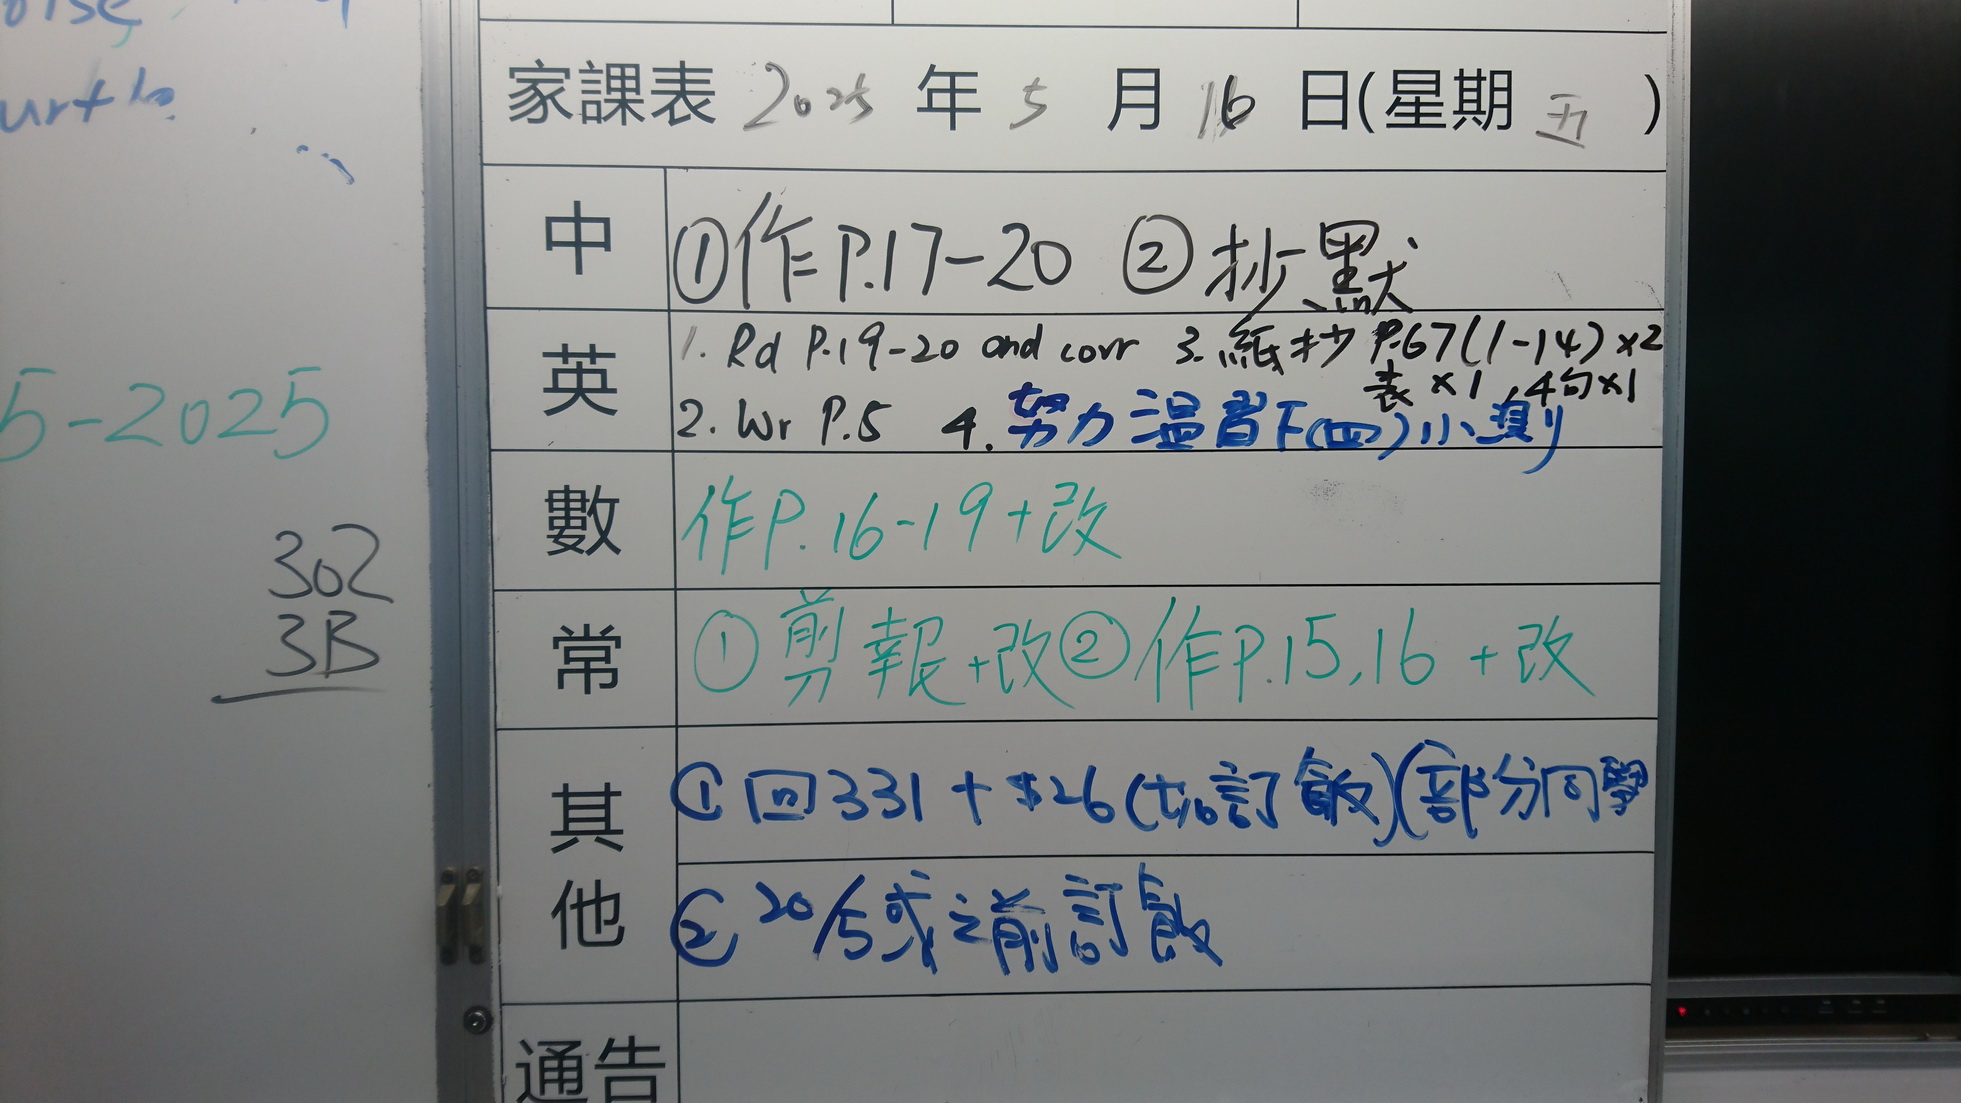 urtle
5-2025
302
3B
家課表 2025 年 5 月 16 日(星期 五 )
中 ①作P.17-20 ②抄默
英 1. Rd P.19-20 and corr 3. 紙抄 P.67(1-14)×2
表×1, 4句×1
2. Wr P.5 4. 努力溫習下(四)小測
數 作P.16-19+改
常 ①剪報+改②作P.15,16 +改
其他 ①回331 + $26 (加訂飯)(部分同學
②20/5或之前訂飯
通告